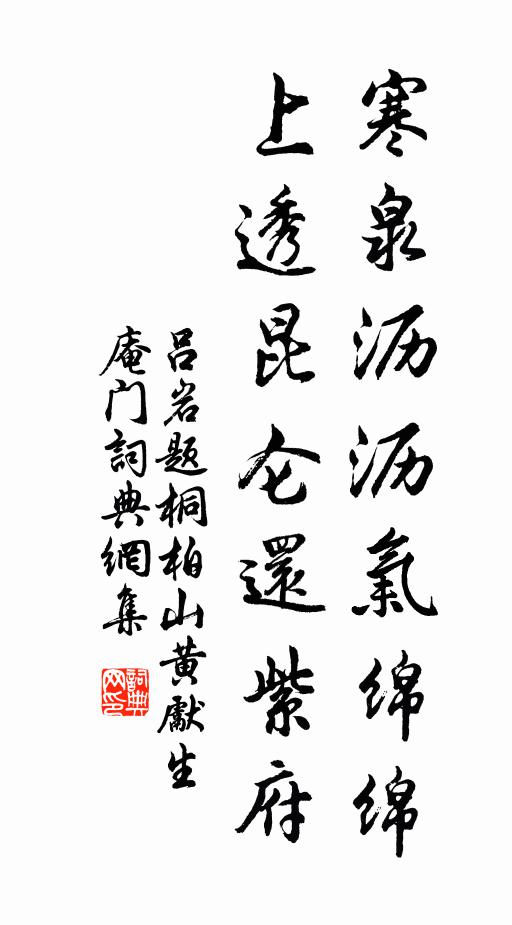 寒泉沥沥氣绵绵
上透昆仑還紫府
吕岩题桐柏山黄獻生
庵门詞典網集
詞典
网印